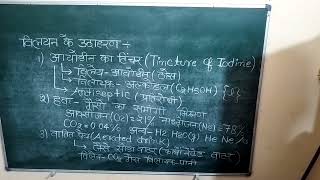 विलयन के उदाहरण ÷
1) आयोडीन का टिंचर (Tincture of Iodine)
विलेय - आयोडीन (ठोस)
विलायक - अल्कोहल (C₂H₅OH)
Antiseptic (
2) हवा - गैसों का समांगी मिश्रण
ऑक्सीजन (O₂) = 21% नाइट्रोजन (N₂) = 78%
CO₂ = 0.04% अन्य - H₂ He Ne
3) वातित पेय (Aerated drink)
जैसे सोडा वाटर
विलेय - CO₂ गैस विलायक - पानी